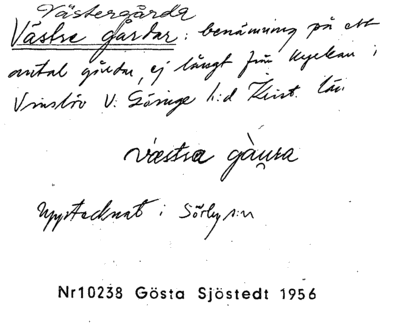 Västergårda
Västre gårdar: benämning på ett
antal gårdar, ej långt från kyrkan i
Vinslöv V. Göinge h:d Krist. län
væstra gåura
Upptecknat i Sörby sn
Nr10238 Gösta Sjöstedt 1956